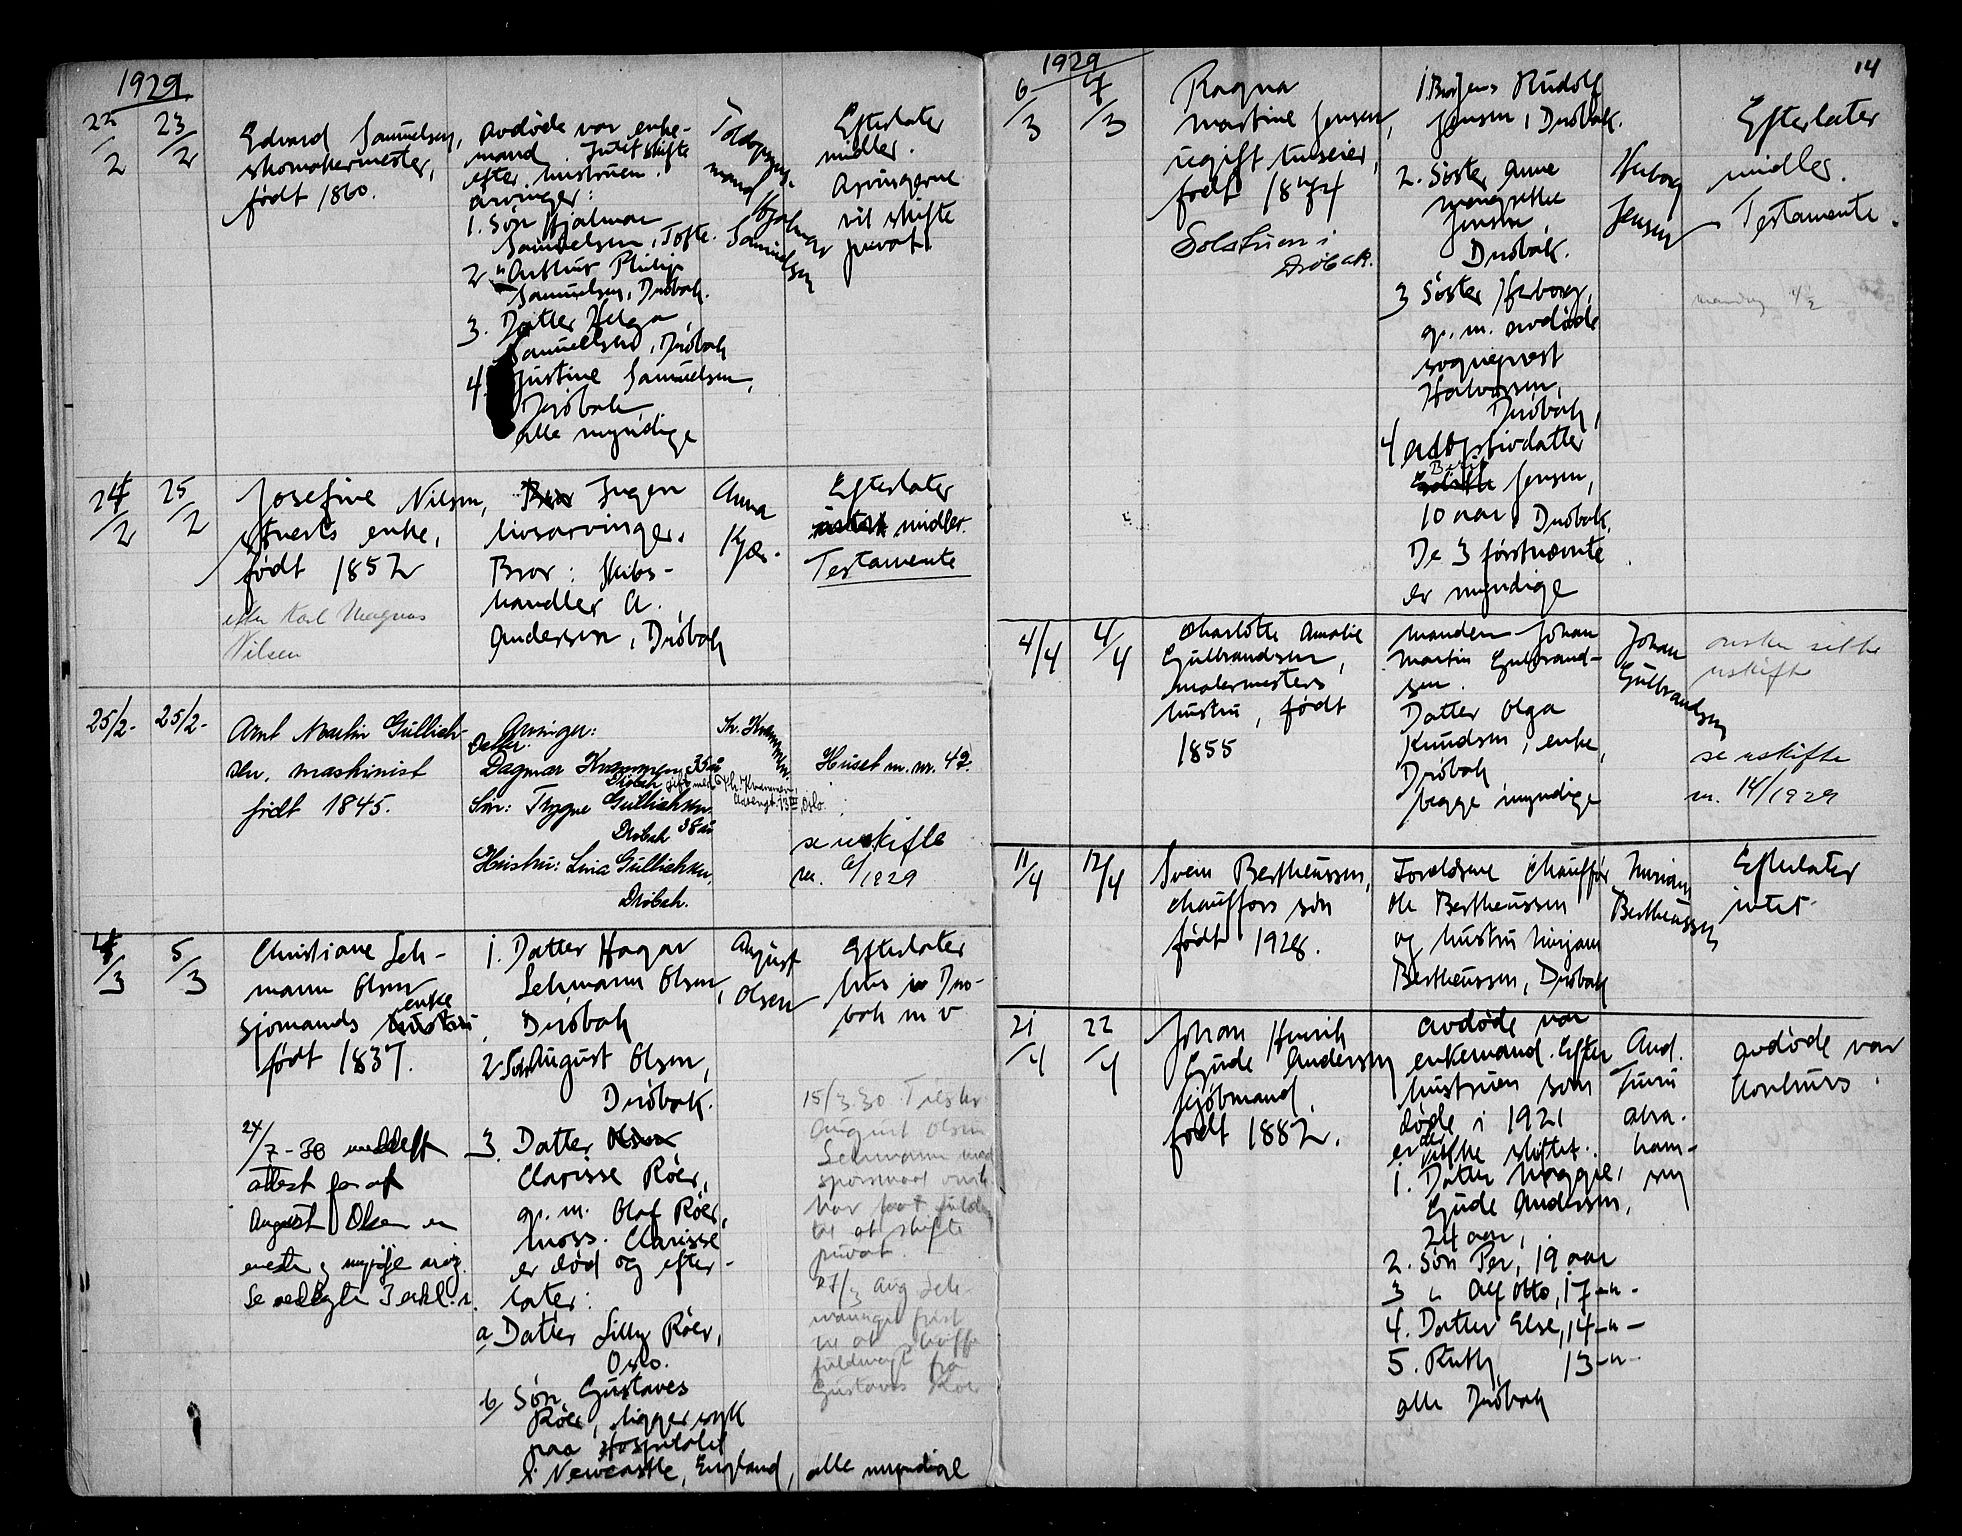 1929
22/2
23/2
Edvard Samuelsen,
skomakermester,
født 1860.
Avdøde var enke-
mand. Intet skifte
efter hustruen.
Arvinger:
1. Søn Hjalmar
Samuelsen, Tofte.
2 " Arthur Philip
Samuelsen, Drøbak.
3. Datter Helga
Samuelsen, Drøbak
4. Justine Samuelsen,
Drøbak
alle myndige
mand Hjalmar
Samuelsen
Efterlater
midler.
Arvingerne
vil skifte
privat.
24/2
25/2
Josefine Nilsen,
enke,
født 1852
efter Karl Magnus
Nilsen
Bror Ingen
livsarvinger.
Bror: Skibs-
handler A.
Andersen, Drøbak
Anna
Kjær.
Efterlater
midler.
Testamente
25/2-
25/2-
Arnt Martin Gullich-
sen, maskinist
født 1845.
Arvinger:
Datter:
Dagmar Krammer 35 år
Drøbak gift med Th. Krammer,
Søn: Trygve Gullichsen.
Drøbak 38 år
Hustru: Lina Gullichsen,
Drøbak.
Huset m. nr. 42.
se uskifte
nr. 6/1929
4/3
5/3
Christiane Leh-
mann Olsen
enke
sjømands hustru
født 1837.
24/7-30 meddelt
attest for at
August Olsen er
eneste myndige arving.
1. Datter Hagar
Lehmann Olsen,
Drøbak
2 Søn August Olsen,
Drøbak.
3. Datter Olsen
Clarisse Röer,
g. m. Olaf Röer,
Moss. Clarisse
er død og efter-
later:
a. Datter Lilly Röer,
Oslo.
b. Søn Gustaves
Röer, ligger syk
paa Hospitalet
i Newcastle, England, alle myndige
August
Olsen
Efterlater
hus i Drø-
bak m v
15/3.30
August Olsen
Lehmann
har faat
til at skifte
privat.
27/3 Aug Leh-
frist
til at skaffe
fuldmagt fra
Gustaves Röer
1929
14
6/3
7/3
Ragna
Martine Jensen,
ugift huseier,
født 1874
Solstuen i
Drøbak.
1. Brodjens Rudolf
Jensen, Drøbak.
2. Søster Anne
Margrethe
Jensen,
Drøbak.
3 Søster Herborg,
g. m. avdøde
sogneprest
Halvorsen,
Drøbak,
4 Adoptivdatter
Berit
Jensen,
10 aar, Drøbak,
De 3 førstnævnte
er myndige
Herborg
Jensen
Efterlater
midler.
Testamente.
4/4
4/4
Charlotte Amalie
Gulbrandsen,
malermesters
hustru, født
1855
Manden Johan
Martin Gulbrand-
sen.
Datter Olga
Knudsen, enke,
Drøbak
begge myndige
Johan
Gulbrandsen
ønsker sitte
uskifte
se uskifte
nr. 14/1929
11/4
12/4
Svein Bertheussen,
chaufførs søn
født 1928.
Forældrene chauffør
Ole Bertheussen
og hustru Mirjam
Bertheussen, Drøbak
Mirjam
Bertheussen
Efterlater
intet.
21/4
22/4
Johan Henrik
Gude Andersen
kjøbmand
født 1882.
Avdøde var
enkemand. Efter
hustruen som
døde i 1921
er der ikke skiftet.
1. Datter Maggie,
Gude Andersen,
24 aar,
2. Søn Per, 19 aar
3 " Alf Otto, 17 -"-
4. Datter Else, 14 -"-
5. Ruth, 13 -"-
alle Drøbak
And.
Avdøde var
konkurs.